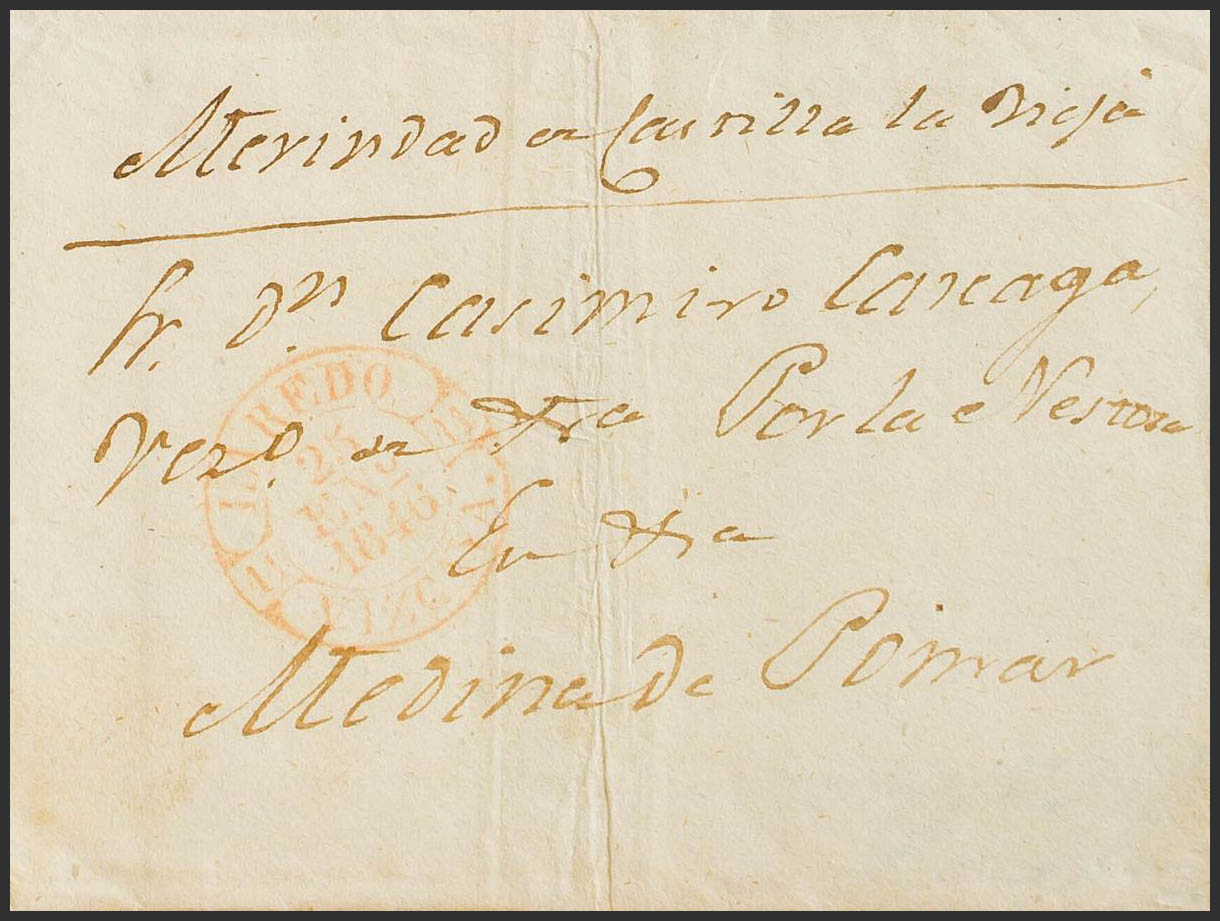 Merindad de Castilla la Vieja
Sr. Dn. Casimiro
Vezo. de Por la Nestosa
En
Medina de Pomar
LAREDO
23
ENE
1846
VIZCAYA.